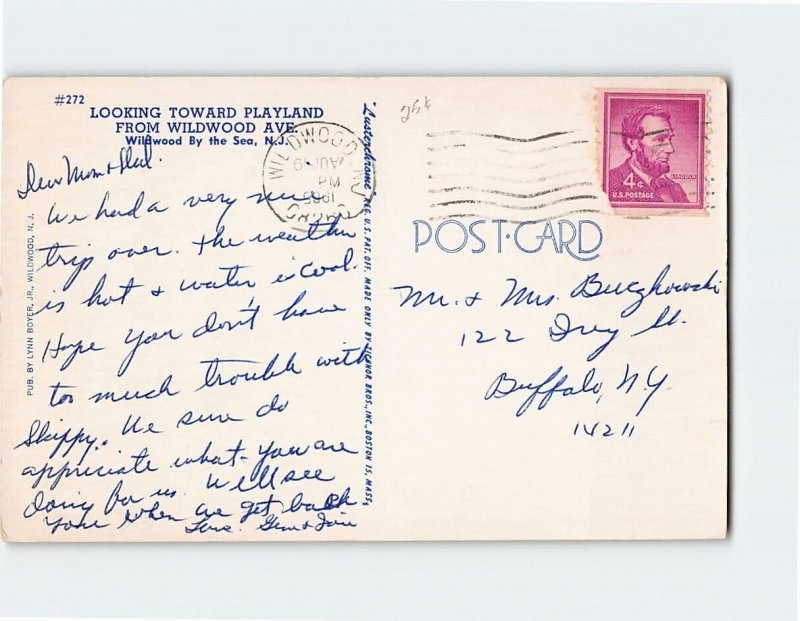 #272
LOOKING TOWARD PLAYLAND
FROM WILDWOOD AVE.
Wildwood By the Sea, N.J.
Dear Mom & Dad.
We had a very nice
trip over. The weather
is hot & water is cool.
Hope you don't have
too much trouble with
Skippy. We sure do
appreciate what you are
doing for us. We'll see
you when we get back
Love.
PUB. BY LYNN BOYER, JR., WILDWOOD, N. J.
"Lusterchrome" REG. U.S. PAT. OFF. MADE ONLY BY TICHNOR BROS., INC., BOSTON 15, MASS.
WILDWOOD, N.J.
PM
25¢
4¢
LINCOLN
U.S. POSTAGE
POST-CARD
Mr. & Mrs.
122
Buffalo, N.Y.
14211